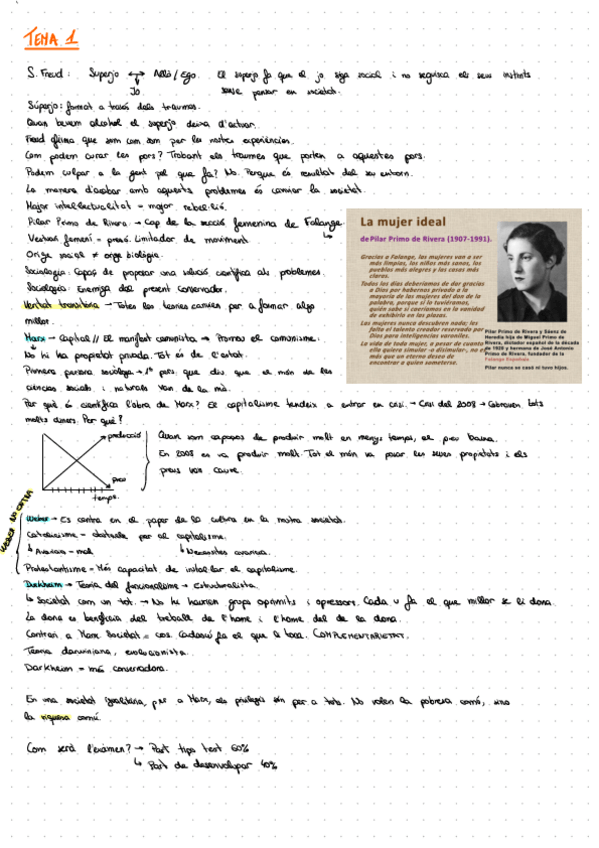 TEMA 1
S. Freud: Superjo ↔ Allò/Ego. El superjo fa que el jo siga social i no seguisca els seus instints
Jo sense pensar en societat.
Súperjo: format a través dels traumes.
Quan bevem alcohol el superjo deixa d'actuar.
Freud afirma que som com som per les nostres experiències.
Com podem curar les pors? Trobant els traumes que porten a aquestes pors.
Podem culpar a la gent pel que fa? No. Perquè és resultat del seu entorn.
La manera d'acabar amb aquests problemes és canviar la societat.
Major intel·lectualitat = major rebel·lió.
Pilar Primo de Rivera → Cap de la secció femenina de Falange.
Vestuari femení = presó. Limitador de moviment.
Orige social ≠ orge biològic.
Sociologia: Capaç de proposar una solució científica als problemes.
Sociologia: Enemiga del present conservador.
Veritat transitòria → Totes les teories canvien per a formar algo
millor.
Marx → Capital // El manifest comunista → Promou el comunisme.
↳ No hi ha propietat privada. Tot és de l'estat.
Primera persona sociòloga → 1ª pers. que diu que el món de les
ciències socials i naturals van de la mà.
Per què és científica l'obra de Marx? El capitalisme tendeix a entrar en crisi. → Crisi del 2008 → Cobraven tots
molts diners. Per què?
producció
preu
temps
Quan som capaços de produir molt en menys temps, el preu baixa.
En 2008 es va produir molt. Tot el món va posar les seues propietats i els
preus van caure.
WEBER NO ENTRA
Weber → Es centra en el paper de la cultura en la nostra societat.
Catolicisme - obstacle per al capitalisme.
↳ Avarícia = mal ↳ Necessites avarícia.
Protestantisme - Més capacitat de instal·lar el capitalisme.
Durkheim → Teoria del funcionalisme → Estructuralista.
↳ Societat com un tot. → No hi hauríen grups oprimits i opressors. Cada u fa el que millor se li dona.
La dona es beneficia del treball de l'home i l'home del de la dona.
Contrari a Marx Societat = cos. Cadascú fa el que li toca. COMPLEMENTARIETAT.
Teoria darwiniana, evolucionista.
Darkheim = més conservadora.
En una societat igualitària, per a Marx, els privilegis són per a tots. No volen la pobresa comú, sino
la riquesa comú.
Com serà l'exàmen? → Part tipo test 60%
↳ Part de desenvolupar 40%
La mujer ideal
de Pilar Primo de Rivera (1907-1991).
Gracias a Falange, las mujeres van a ser
más limpias, los niños más sanos, los
pueblos más alegres y las casas más
claras.
Todos los días deberíamos de dar gracias
a Dios por habernos privado a la
mayoría de las mujeres del don de la
palabra, porque si lo tuviéramos,
quién sabe si caeríamos en la vanidad
de exhibirlo en las plazas.
Las mujeres nunca descubren nada; les
falta el talento creador reservado por
Dios para inteligencias varoniles.
La vida de toda mujer, a pesar de cuanto
ella quiere simular -o disimular-, no es
más que un eterno deseo de
encontrar a quien someterse.
Pilar Primo de Rivera y Sáenz de
Heredia hija de Miguel Primo de
Rivera, dictador español de la década
de 1920 y hermana de José Antonio
Primo de Rivera, fundador de la
Falange Española
Pilar nunca se casó ni tuvo hijos.